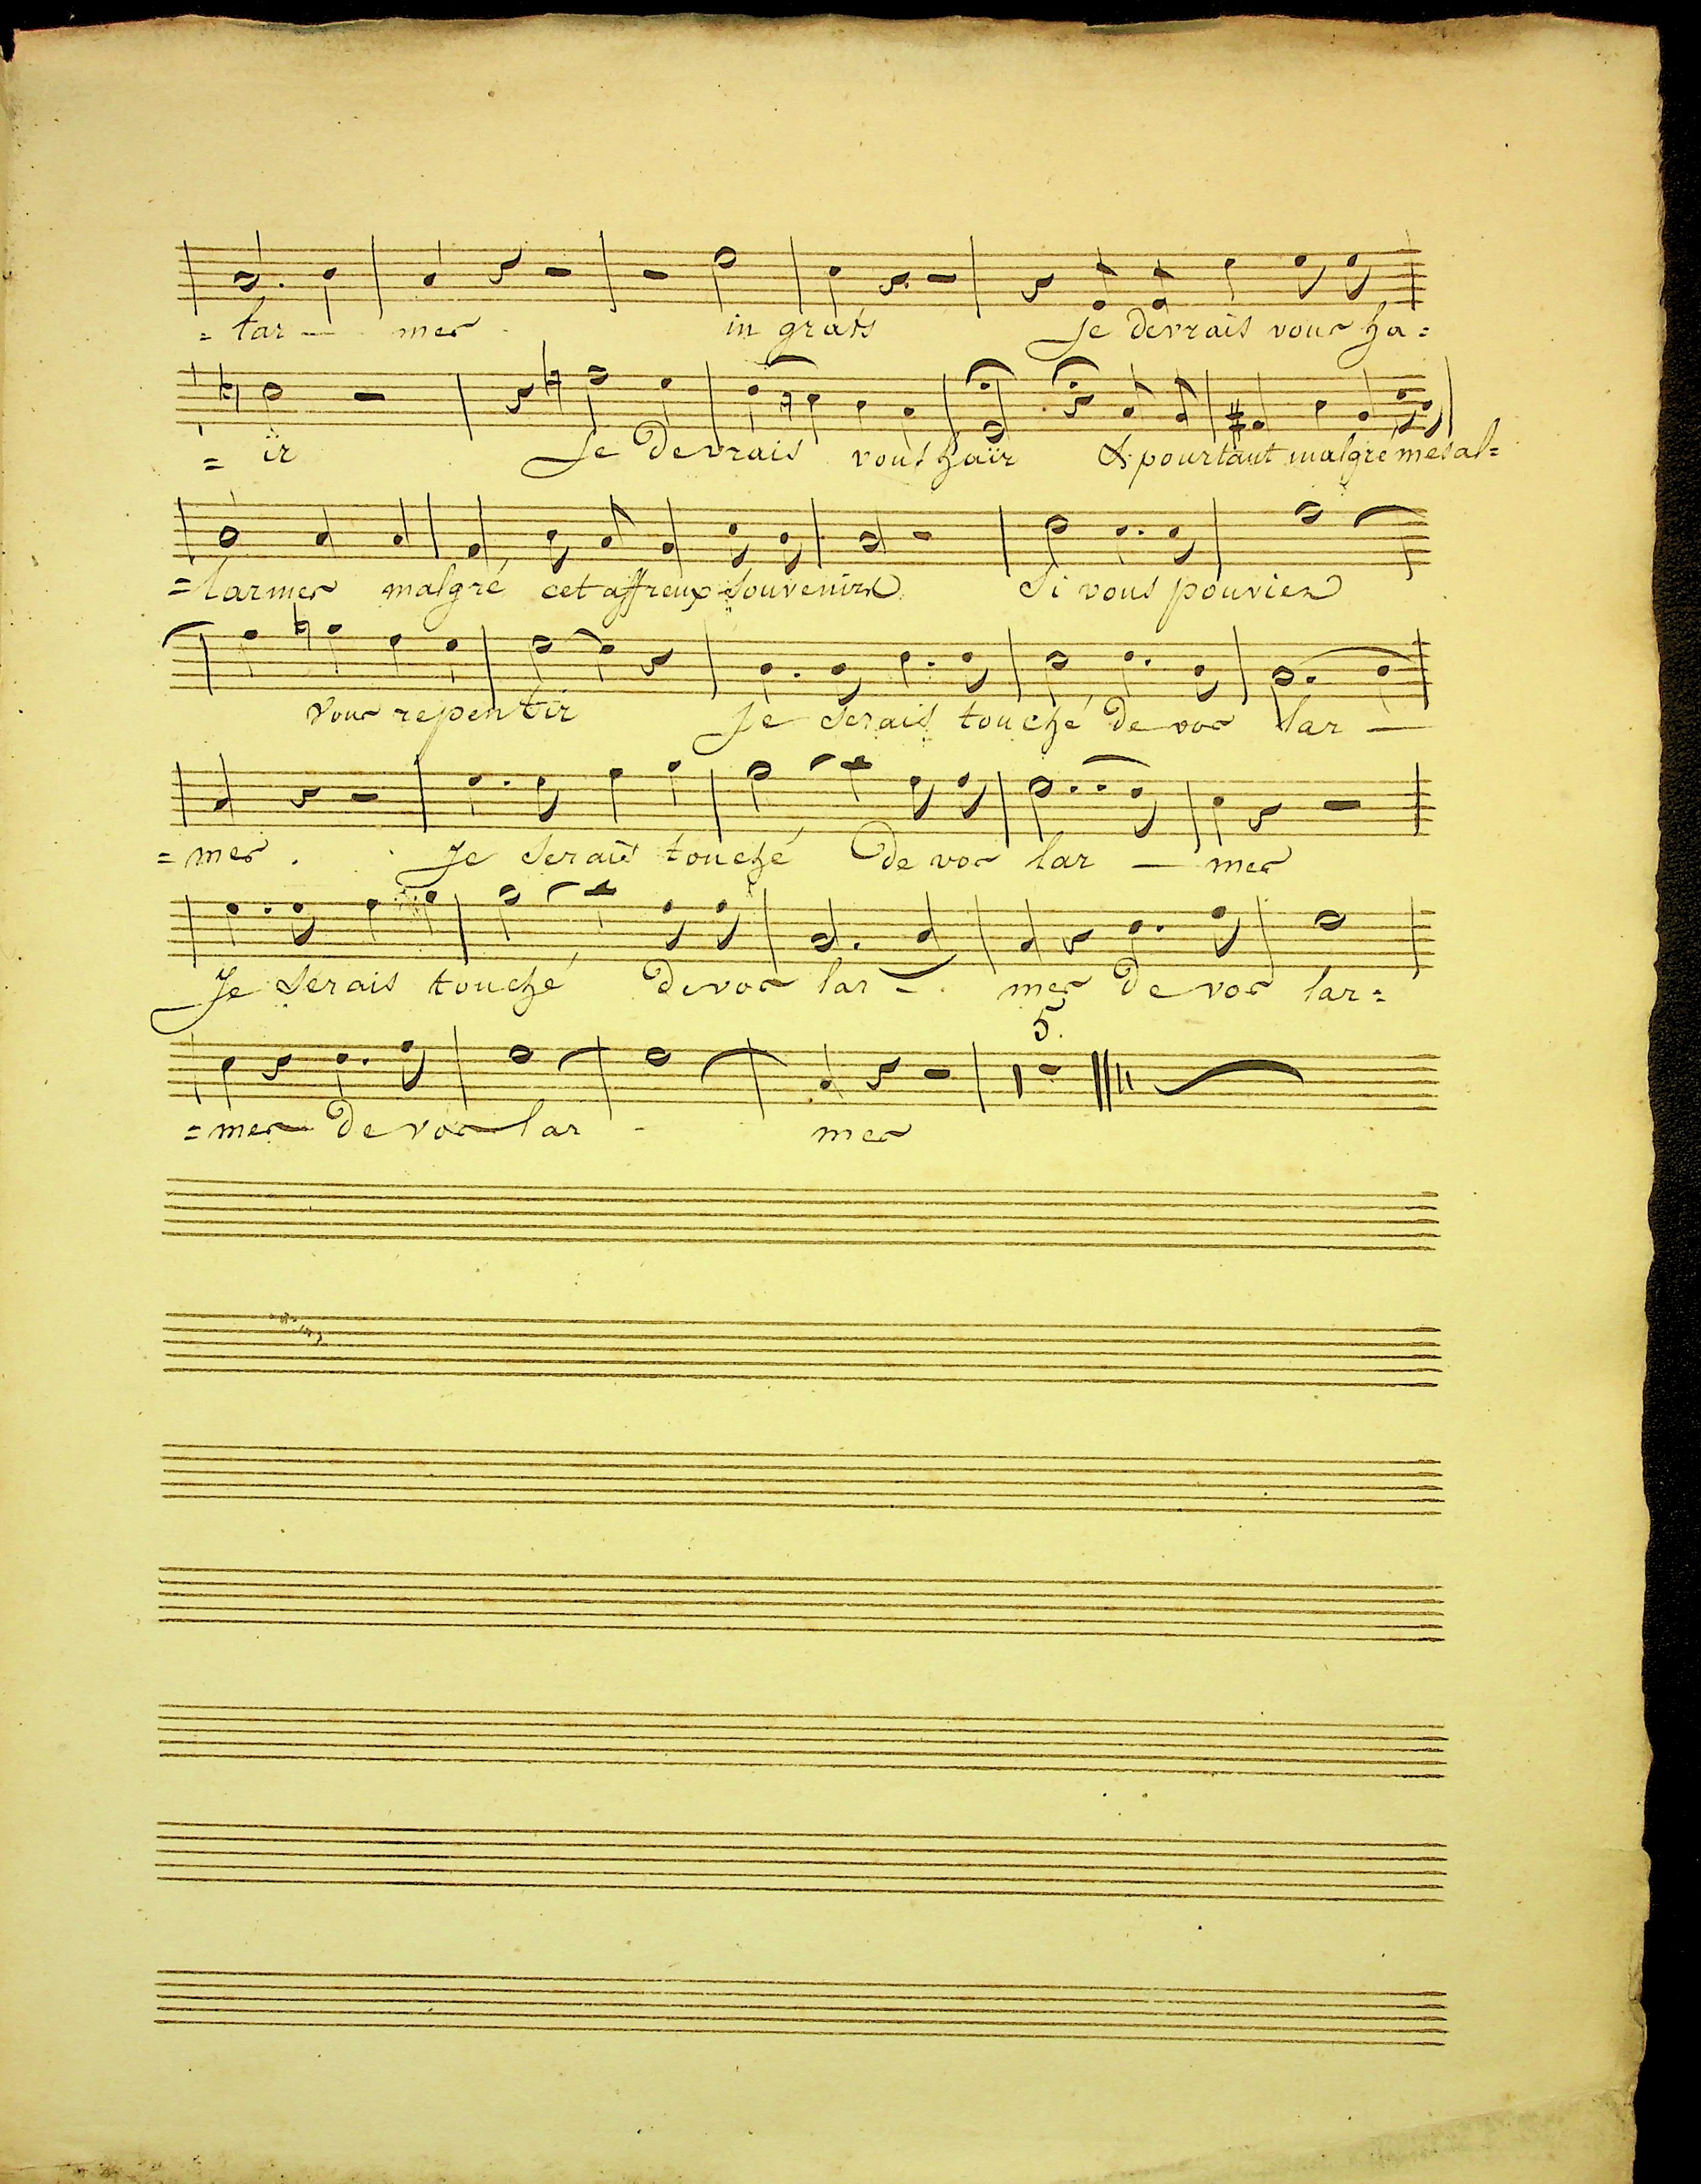 = lar — mes in grats je devrais vous ha =
= ïr je devrais vous haïr & pourtant malgré mes al =
= larmes malgré cet affreux souvenir Si vous pouviez
vous repentir je serais touché de vos lar —
= mes. je serais touché de vos lar — mes
je serais touché de vos lar - mes de vos lar =
5
= mes de vos lar - mes